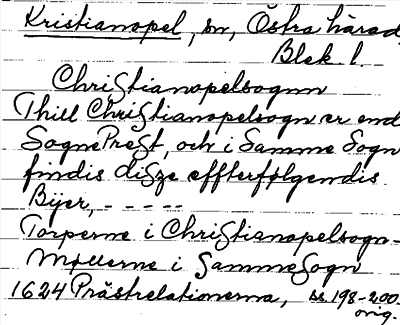 Kristianopel, sn, Östra härad
Blek. l.
Christianopelsognn
Thill Christianopelsogn er end
SognePrest, och i Samme Sogn
findis disze effterfølgendis
Bijer, - - - - -
Torperne i Christianopelsogn -
Møllerne i SammeSogn
1624 Prästrelationerna, ss. 198-200.
orig.